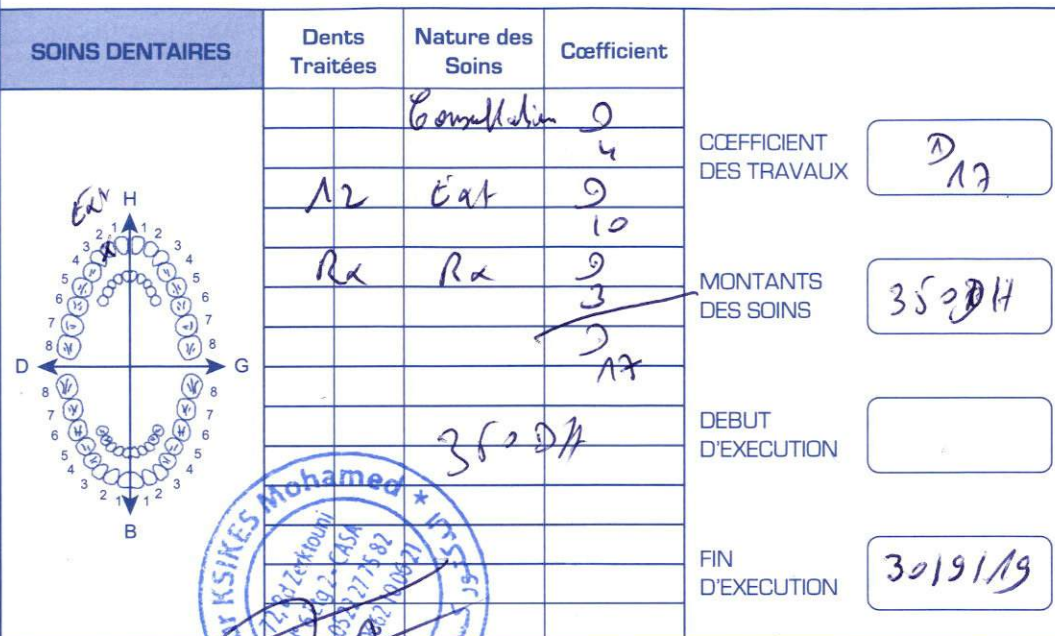 SOINS DENTAIRES
Dents Traitées
Nature des Soins
Cœfficient
Consultation D 4
12 Ext D 10
Rx Rx D 3
D 17
350 DH
Ext
H
D
G
B
8 7 6 5 4 3 2 1 1 2 3 4 5 6 7 8
8 7 6 5 4 3 2 1 1 2 3 4 5 6 7 8
CŒFFICIENT
DES TRAVAUX
D 17
MONTANTS
DES SOINS
350DH
DEBUT
D'EXECUTION
FIN
D'EXECUTION
30/9/19
Dr KSIKES Mohamed *
72, Bd Zerktouni
2 - CASA
0522 27 75 82